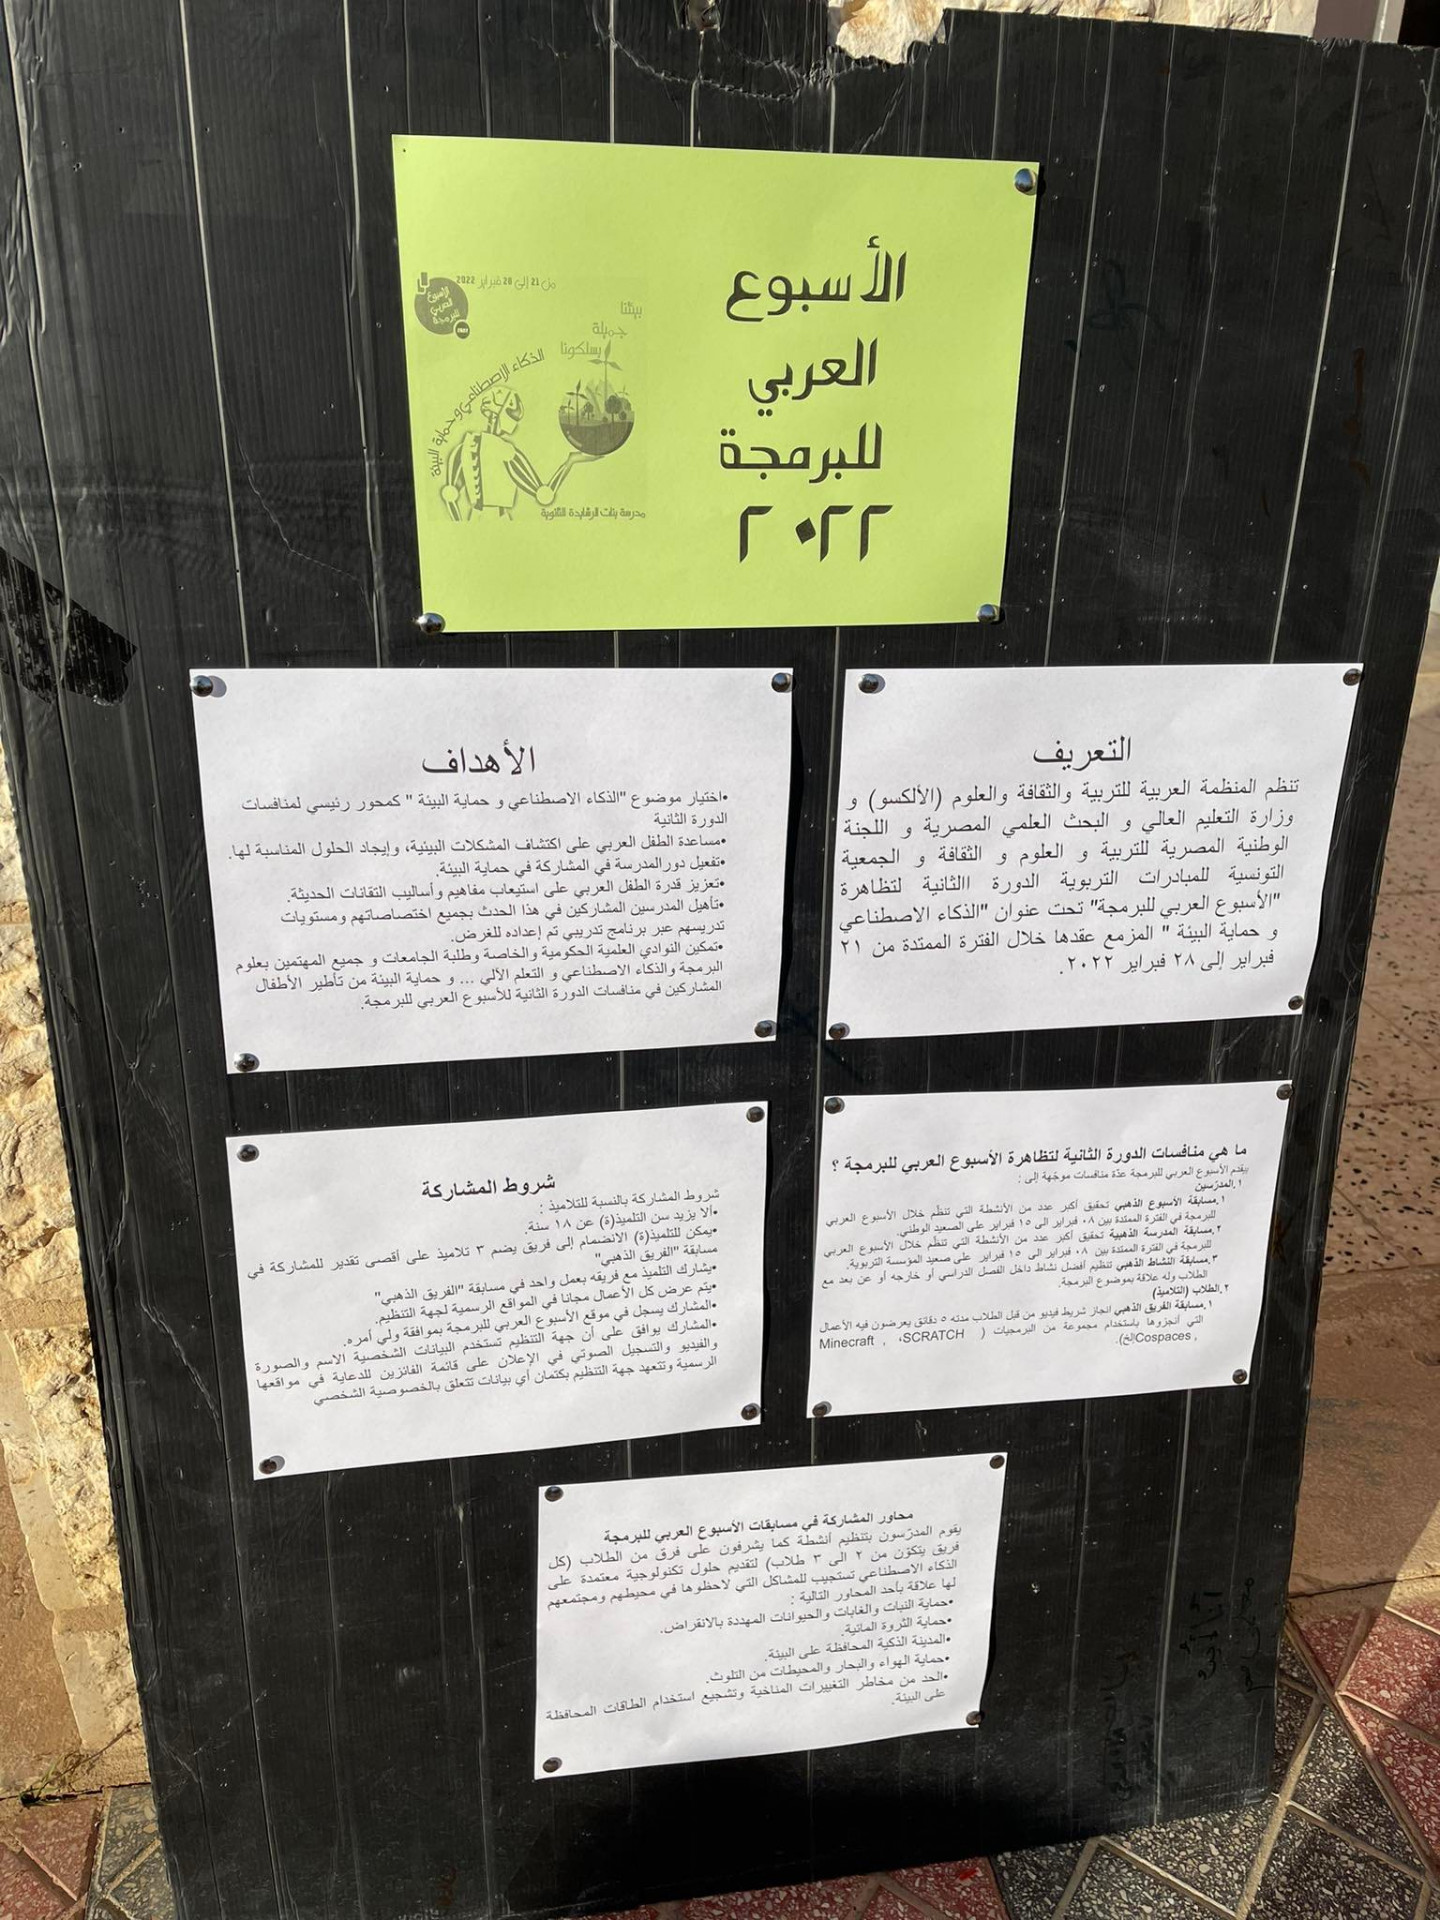 الأسبوع
العربي
للبرمجة
٢٠٢٢
من 21 إلى 28 فبراير 2022
الأسبوع
العربي
للبرمجة
بيئتنا
جميلة
بسلكونا
الذكاء الاصطناعي وحماية البيئة
مدرسة بنات الرشايدة الثانوية
التعريف
تنظم المنظمة العربية للتربية والثقافة والعلوم (الألكسو) و
وزارة التعليم العالي و البحث العلمي المصرية و اللجنة
الوطنية المصرية للتربية و العلوم و الثقافة و الجمعية
التونسية للمبادرات التربوية الدورة االثانية لتظاهرة
"الأسبوع العربي للبرمجة" تحت عنوان "الذكاء الاصطناعي
و حماية البيئة " المزمع عقدها خلال الفترة الممتدة من ٢١
فبراير إلى ٢٨ فبراير ٢٠٢٢.
الأهداف
•اختيار موضوع "الذكاء الاصطناعي و حماية البيئة " كمحور رئيسي لمنافسات
الدورة الثانية
•مساعدة الطفل العربي على اكتشاف المشكلات البيئية، وإيجاد الحلول المناسبة لها.
•تفعيل دورالمدرسة في المشاركة في حماية البيئة.
•تعزيز قدرة الطفل العربي على استيعاب مفاهيم وأساليب التقانات الحديثة.
•تأهيل المدرسين المشاركين في هذا الحدث بجميع اختصاصاتهم ومستويات
تدريسهم عبر برنامج تدريبي تم إعداده للغرض.
•تمكين النوادي العلمية الحكومية والخاصة وطلبة الجامعات و جميع المهتمين بعلوم
البرمجة والذكاء الاصطناعي و التعلم الآلي ... و حماية البيئة من تأطير الأطفال
المشاركين في منافسات الدورة الثانية للأسبوع العربي للبرمجة.
ما هي منافسات الدورة الثانية لتظاهرة الأسبوع العربي للبرمجة ؟
يقدم الأسبوع العربي للبرمجة عدّة منافسات موجّهة إلى :
١.المدرّسين
١.مسابقة الأسبوع الذهبي تحقيق أكبر عدد من الأنشطة التي تنظّم خلال الأسبوع العربي
للبرمجة في الفترة الممتدة بين ٠٨ فبراير الى ١٥ فبراير على الصعيد الوطني.
٢.مسابقة المدرسة الذهبية تحقيق أكبر عدد من الأنشطة التي تنظّم خلال الأسبوع العربي
للبرمجة في الفترة الممتدة بين ٠٨ فبراير الى ١٥ فبراير على صعيد المؤسسة التربوية.
٣.مسابقة النشاط الذهبي تنظيم أفضل نشاط داخل الفصل الدراسي أو خارجه أو عن بعد مع
الطلاب وله علاقة بموضوع البرمجة.
٢.الطلاب (التلاميذ)
١.مسابقة الفريق الذهبي انجاز شريط فيديو من قبل الطلاب مدته ٥ دقائق يعرضون فيه الأعمال
التي أنجزوها باستخدام مجموعة من البرمجيات ( SCRATCH، , Minecraft
, Cospacesإلخ).
شروط المشاركة
شروط المشاركة بالنسبة للتلاميذ :
•ألا يزيد سن التلميذ(ة) عن ١٨ سنة.
•يمكن للتلميذ(ة) الانضمام إلى فريق يضم ٣ تلاميذ على أقصى تقدير للمشاركة في
مسابقة "الفريق الذهبي"
•يشارك التلميذ مع فريقه بعمل واحد في مسابقة "الفريق الذهبي"
•يتم عرض كل الأعمال مجانا في المواقع الرسمية لجهة التنظيم.
•المشارك يسجل في موقع الأسبوع العربي للبرمجة بموافقة ولي أمره.
•المشارك يوافق على أن جهة التنظيم تستخدم البيانات الشخصية الاسم والصورة
والفيديو والتسجيل الصوتي في الإعلان على قائمة الفائزين للدعاية في مواقعها
الرسمية وتتعهد جهة التنظيم بكتمان أي بيانات تتعلق بالخصوصية الشخصي
محاور المشاركة في مسابقات الأسبوع العربي للبرمجة
يقوم المدرّسون بتنظيم أنشطة كما يشرفون على فرق من الطلاب (كل
فريق يتكوّن من ٢ الى ٣ طلاب) لتقديم حلول تكنولوجية معتمدة على
الذكاء الاصطناعي تستجيب للمشاكل التي لاحظوها في محيطهم ومجتمعهم
لها علاقة بأحد المحاور التالية :
•حماية النبات والغابات والحيوانات المهددة بالانقراض.
•حماية الثروة المائية.
•المدينة الذكية المحافظة على البيئة.
•حماية الهواء والبحار والمحيطات من التلوث.
•الحد من مخاطر التغييرات المناخية وتشجيع استخدام الطاقات المحافظة
على البيئة.